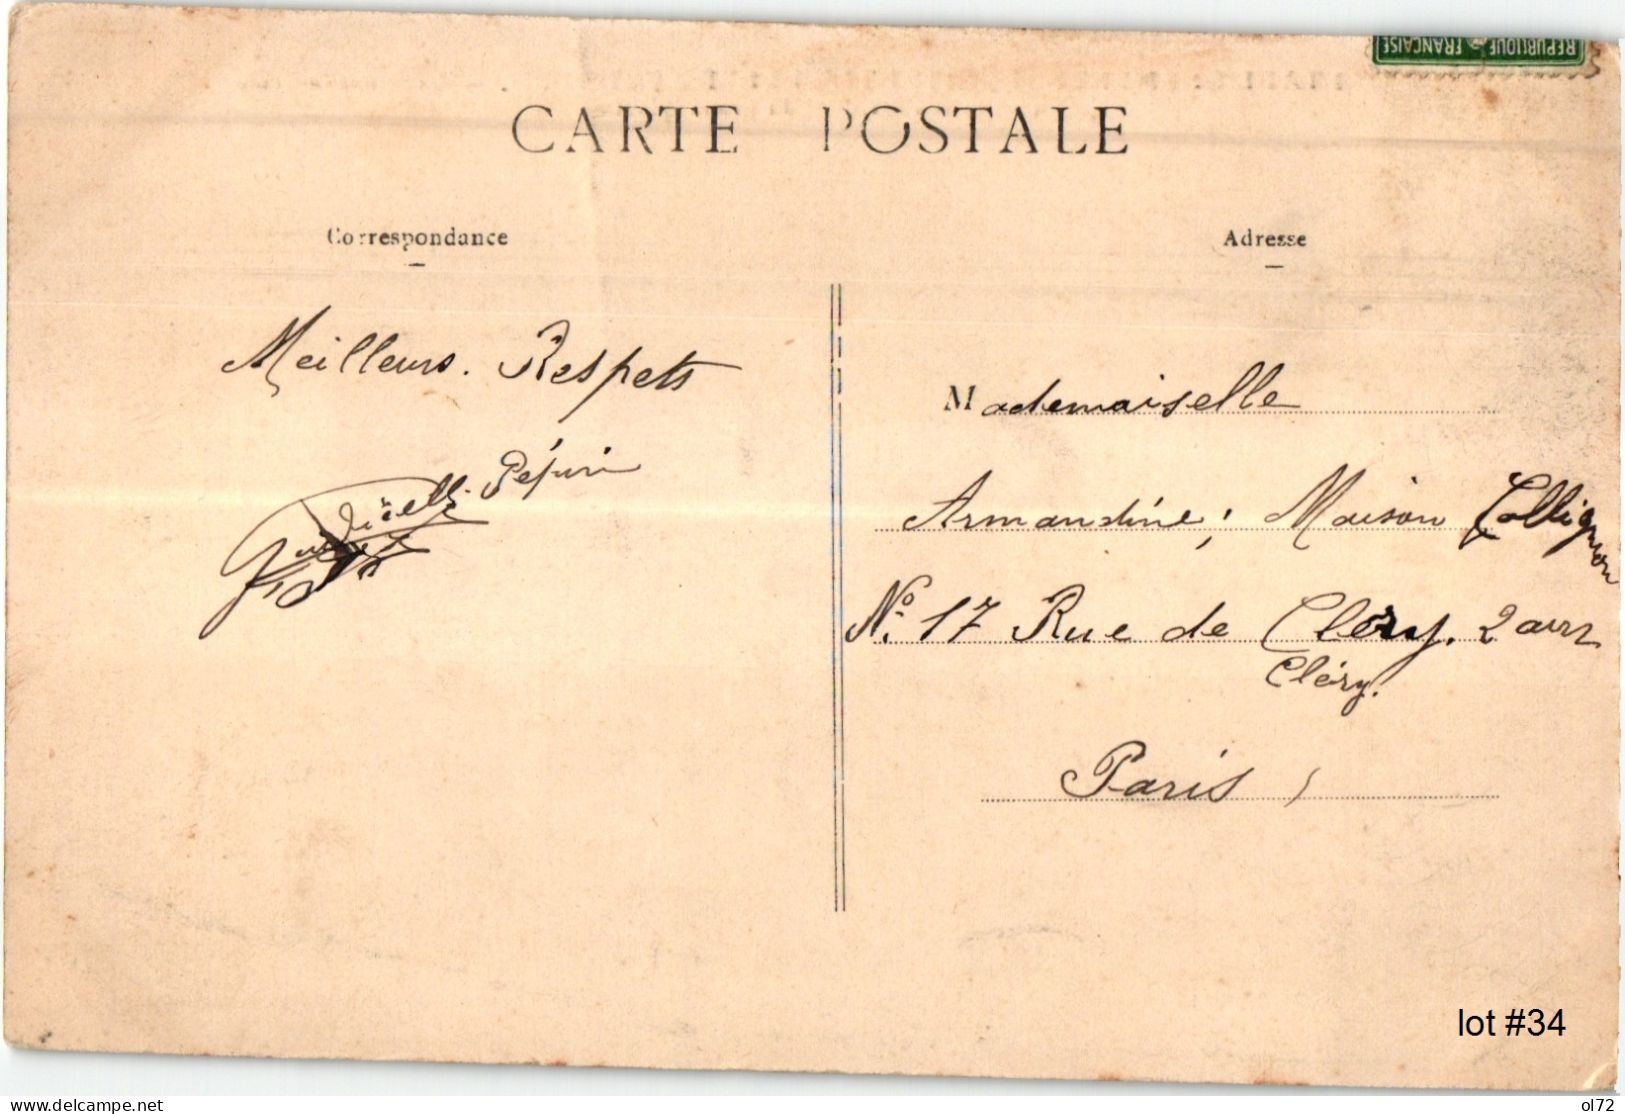 RÉPUBLIQUE FRANÇAISE
CARTE POSTALE
Correspondance
Adresse
Meilleurs. Respets
Mademaiselle
Pépin
Armandine; Maison Collignon
No. 17 Rue de Cléry. 2 arr
Cléry.
Paris
lot #34
delcampe.net
ol72